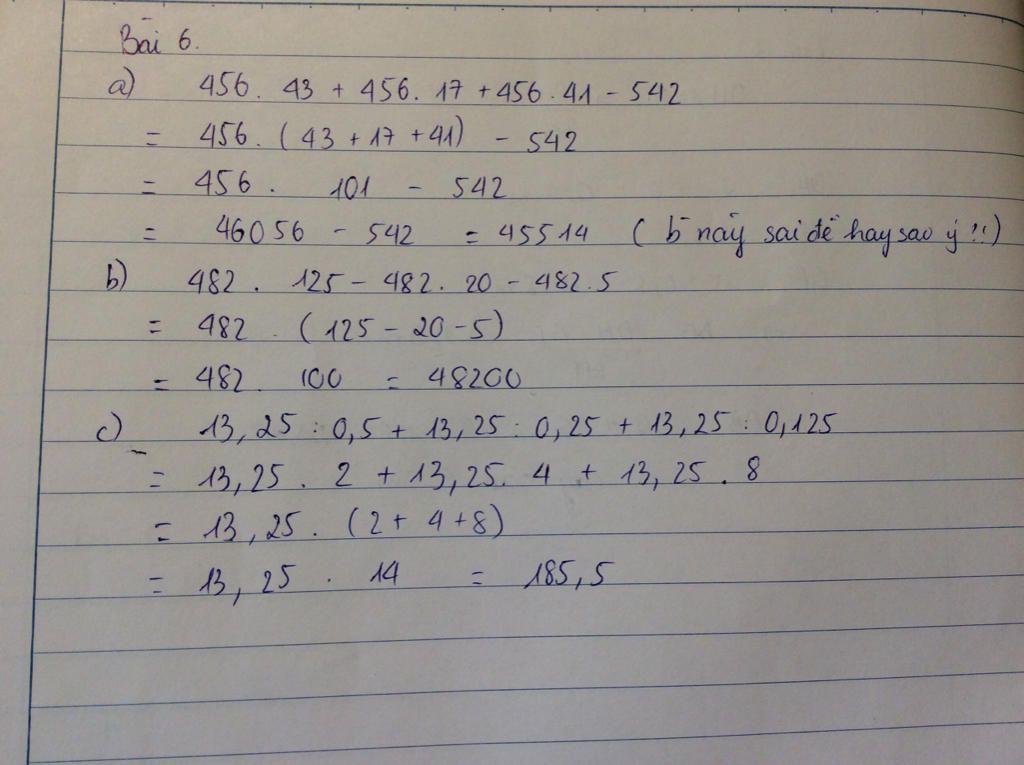 Bài 6.
a) 456. 43 + 456. 17 + 456. 41 - 542
= 456. (43 + 17 + 41) - 542
= 456. 101 - 542
= 46056 - 542 = 45514 (b̀ này sai đề hay sao ý !!)
b) 482. 125 - 482. 20 - 482.5
= 482. (125 - 20 - 5)
= 482. 100 = 48200
c) 13,25 : 0,5 + 13,25 : 0,25 + 13,25 : 0,125
= 13,25. 2 + 13,25. 4 + 13,25. 8
= 13,25. (2 + 4 + 8)
= 13,25. 14 = 185,5